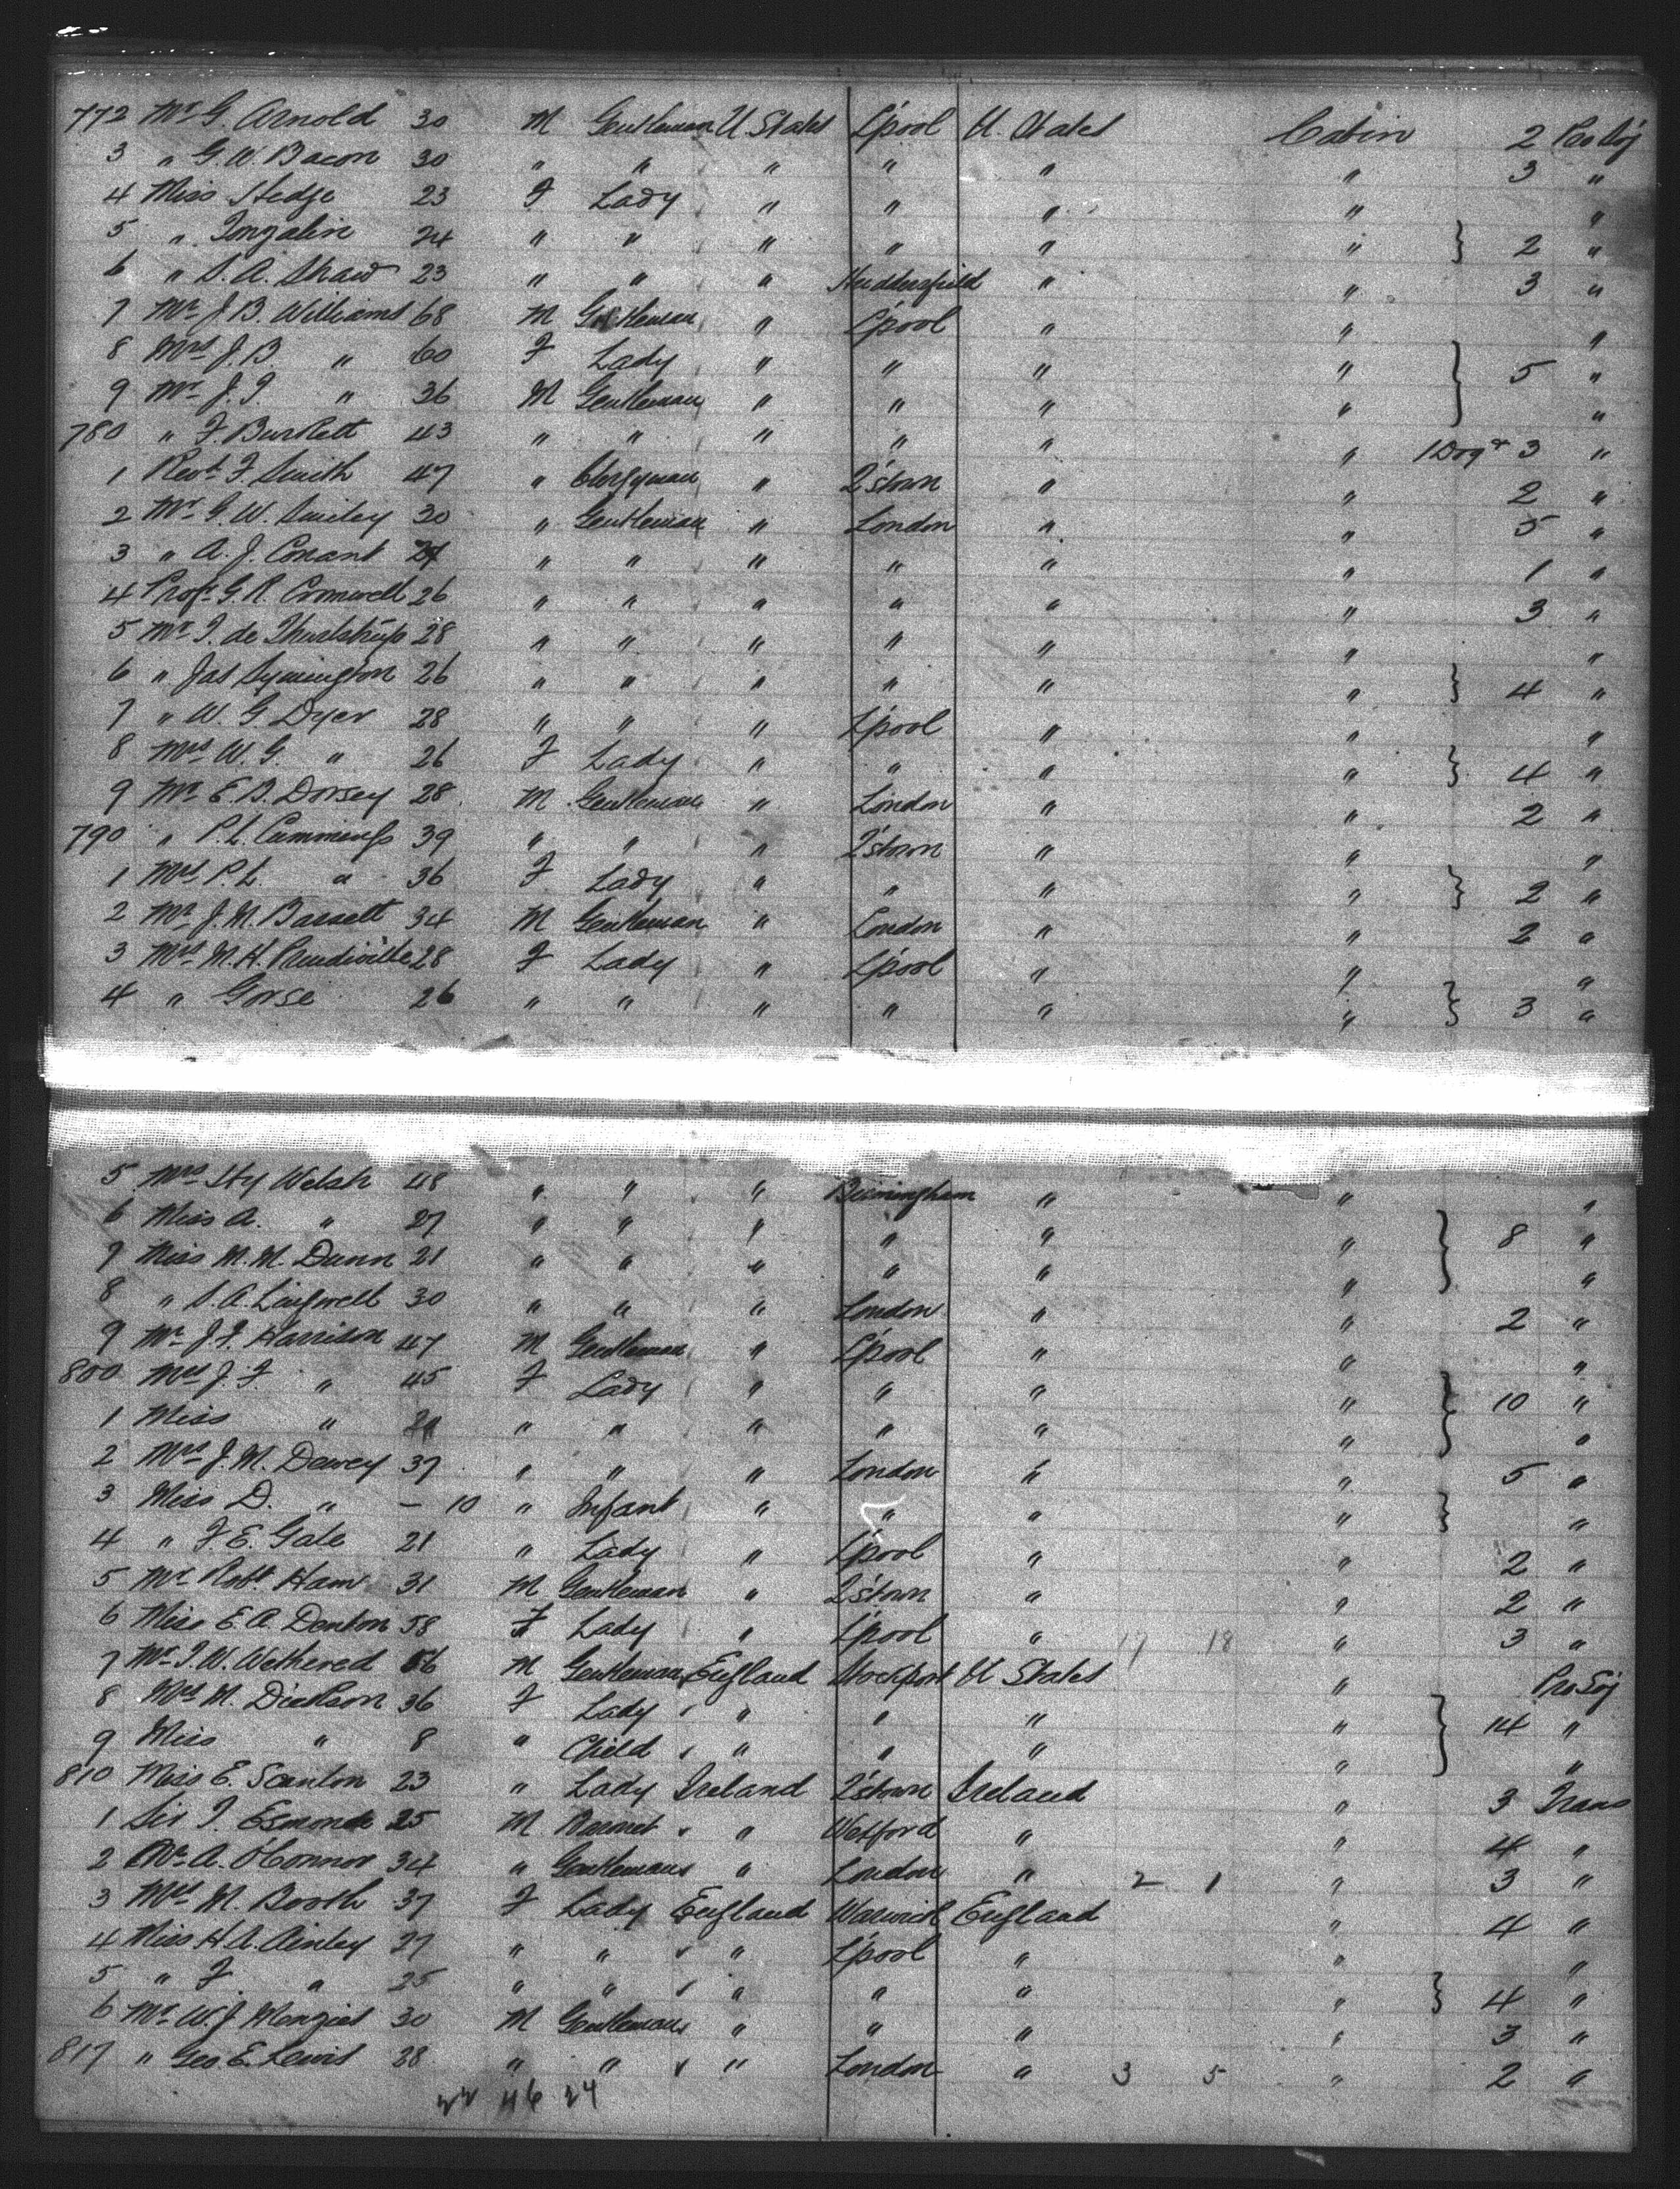 772 Mr G. Arnold 30 M Gentleman U. States L'pool U. States Cabin 2 Pro Soj
3 " G. W. Bacon 30 " " " " " " 3 "
4 Miss Hedge 23 F Lady " " " " "
5 " Tonzalin 24 " " " " " " } 2 "
6 " S. A. Shaw 23 " " " Huddersfield " " 3 "
7 Mr J. B. Williams 68 M Gentleman " L'pool " " "
8 Mrs J. B. " 60 F Lady " " " " } 5 "
9 Mr J. T. " 36 M Gentleman " " " " "
780 " F. Burkett 43 " " " " " " 1 Dog & 3 "
1 Revd F. Smith 47 " Clergyman " Q'stown " " 2 "
2 Mr G. W. Smiley 30 " Gentleman " London " " 5 "
3 " A. J. Conant " " " " " " 1 "
4 Profr G. R. Cromwell 26 " " " " " " 3 "
5 Mr T. de Thulstrup 28 " " " " " " "
6 " Jas Symington 26 " " " " " " } 4 "
7 " W. G. Dyer 28 " " " L'pool " " "
8 Mrs W. G. " 26 F Lady " " " " } 4 "
9 Mr E. B. Dorsey 28 M Gentleman " London " " 2 "
790 " P. L. Cummings 39 " " " Q'stown " " "
1 Mrs P. L. " 36 F Lady " " " " } 2 "
2 Mr J. M. Bassett 34 M Gentleman " London " " 2 "
3 Mrs M. H. Prendiville 28 F Lady " L'pool " " "
4 " Gorse 26 " " " " " " } 3 "
5 Mrs Hy Welsh 48 " " " Birmingham " " "
6 Miss A. " 27 " " " " " " } 8 "
7 Miss M. M. Dunn 21 " " " " " " "
8 " S. A. 30 " " " London " " 2 "
9 Mr J. F. Harrison 47 M Gentleman " L'pool " " "
800 Mrs J. F. " 45 F Lady " " " " } 10 "
1 Miss " " " " " " " "
2 Mrs J. M. Dewey 37 " " " London " " 5 "
3 Miss D. " – 10 " Infant " " " " } "
4 " F. E. Gale 21 " Lady " L'pool " " 2 "
5 Mr Robt Ham 31 M Gentleman " Q'stown " " 2 "
6 Miss E. A. Denton 58 F Lady " L'pool " 17 18 " 3 "
7 Mr T. W. Wethered 56 M Gentleman England Stockport U States " Pro Soj
8 Mrs M. Dickson 36 F Lady " " " " } 14 "
9 Miss " 8 " Child " " " " "
810 Miss E. Scanlon 23 " Lady Ireland Q'stown Ireland " 3 Trans
1 Sir T. Esmonde 25 M Baronet " Wexford " " 4 "
2 Mr A. O'Connor 34 " Gentleman " London " 2 1 " 3 "
3 Mrs M. Booth 37 F Lady England Warwick England " 4 "
4 Miss H. A. Ainley 27 " " " L'pool " " "
5 " F. " 25 " " " " " " } 4 "
6 Mr W. J. Menzies 30 M Gentleman " " " " 3 "
817 " Geo E. Lewis 28 " " " London " 3 5 " 2 "
22 46 24